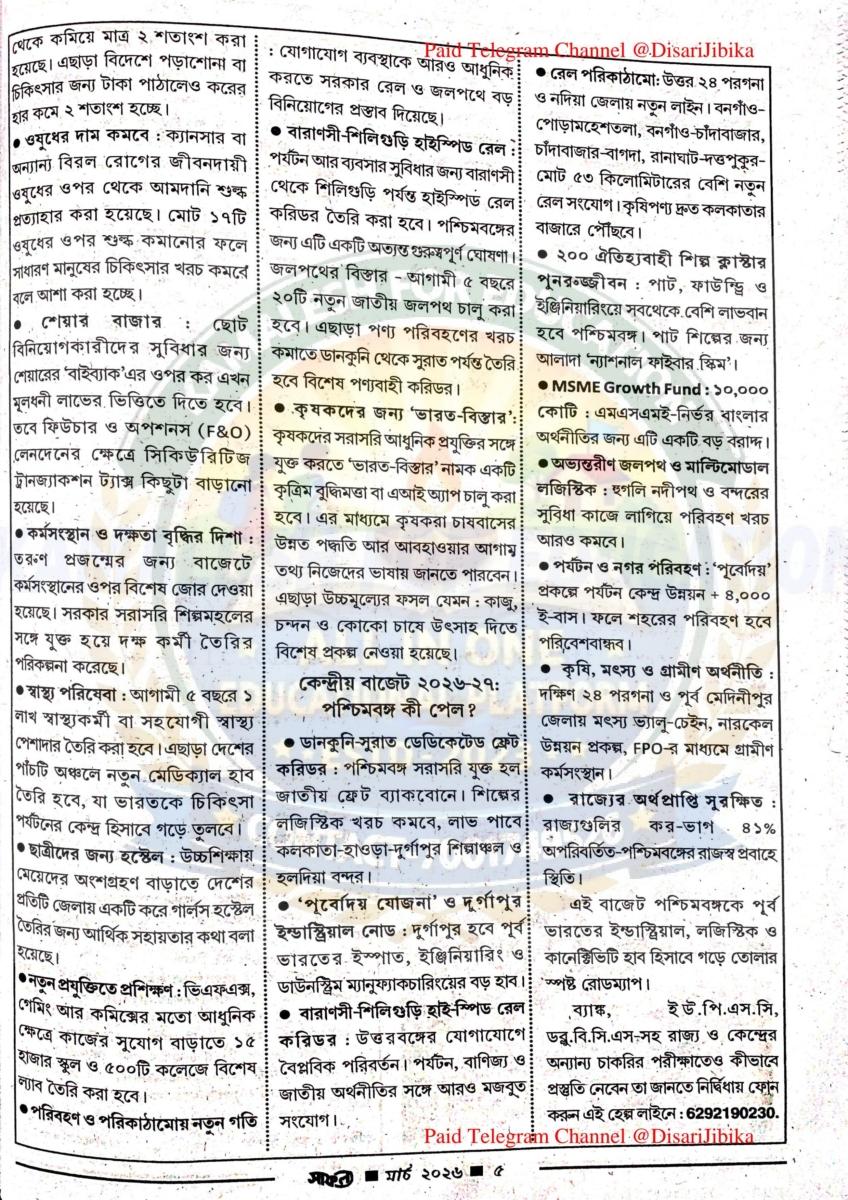 Paid Telegram Channel @DisariJibika
থেকে কমিয়ে মাত্র ২ শতাংশ করা
হয়েছে। এছাড়া বিদেশে পড়াশোনা বা
চিকিৎসার জন্য টাকা পাঠালেও করের
হার কমে ২ শতাংশ হচ্ছে।
● ওষুধের দাম কমবে : ক্যানসার বা
অন্যান্য বিরল রোগের জীবনদায়ী
ওষুধের ওপর থেকে আমদানি শুল্ক
প্রত্যাহার করা হয়েছে। মোট ১৭টি
ওষুধের ওপর শুল্ক কমানোর ফলে
সাধারণ মানুষের চিকিৎসার খরচ কমবে
বলে আশা করা হচ্ছে।
● শেয়ার বাজার : ছোট
বিনিয়োগকারীদের সুবিধার জন্য
শেয়ারের ‘বাইব্যাক’এর ওপর কর এখন
মূলধনী লাভের ভিত্তিতে দিতে হবে।
তবে ফিউচার ও অপশনস (F&O)
লেনদেনের ক্ষেত্রে সিকিউরিটিজ
ট্রানজ্যাকশন ট্যাক্স কিছুটা বাড়ানো
হয়েছে।
● কর্মসংস্থান ও দক্ষতা বৃদ্ধির দিশা :
তরুণ প্রজন্মের জন্য বাজেটে
কর্মসংস্থানের ওপর বিশেষ জোর দেওয়া
হয়েছে। সরকার সরাসরি শিল্পমহলের
সঙ্গে যুক্ত হয়ে দক্ষ কর্মী তৈরির
পরিকল্পনা করেছে।
● স্বাস্থ্য পরিষেবা : আগামী ৫ বছরে ১
লাখ স্বাস্থ্যকর্মী বা সহযোগী স্বাস্থ্য
পেশাদার তৈরি করা হবে। এছাড়া দেশের
পাঁচটি অঞ্চলে নতুন মেডিক্যাল হাব
তৈরি হবে, যা ভারতকে চিকিৎসা
পর্যটনের কেন্দ্র হিসাবে গড়ে তুলবে।
● ছাত্রীদের জন্য হস্টেল : উচ্চশিক্ষায়
মেয়েদের অংশগ্রহণ বাড়াতে দেশের
প্রতিটি জেলায় একটি করে গার্লস হস্টেল
তৈরির জন্য আর্থিক সহায়তার কথা বলা
হয়েছে।
● নতুন প্রযুক্তিতে প্রশিক্ষণ : ভিএফএক্স,
গেমিং আর কমিক্সের মতো আধুনিক
ক্ষেত্রে কাজের সুযোগ বাড়াতে ১৫
হাজার স্কুল ও ৫০০টি কলেজে বিশেষ
ল্যাব তৈরি করা হবে।
● পরিবহণ ও পরিকাঠামোয় নতুন গতি
: যোগাযোগ ব্যবস্থাকে আরও আধুনিক
করতে সরকার রেল ও জলপথে বড়
বিনিয়োগের প্রস্তাব দিয়েছে।
● বারাণসী-শিলিগুড়ি হাইস্পিড রেল :
পর্যটন আর ব্যবসার সুবিধার জন্য বারাণসী
থেকে শিলিগুড়ি পর্যন্ত হাইস্পিড রেল
করিডর তৈরি করা হবে। পশ্চিমবঙ্গের
জন্য এটি একটি অত্যন্ত গুরুত্বপূর্ণ ঘোষণা।
জলপথের বিস্তার - আগামী ৫ বছরে
২০টি নতুন জাতীয় জলপথ চালু করা
হবে। এছাড়া পণ্য পরিবহণের খরচ
কমাতে ডানকুনি থেকে সুরাত পর্যন্ত তৈরি
হবে বিশেষ পণ্যবাহী করিডর।
● কৃষকদের জন্য ‘ভারত-বিস্তার’:
কৃষকদের সরাসরি আধুনিক প্রযুক্তির সঙ্গে
যুক্ত করতে ‘ভারত-বিস্তার’ নামক একটি
কৃত্রিম বুদ্ধিমত্তা বা এআই অ্যাপ চালু করা
হবে। এর মাধ্যমে কৃষকরা চাষবাসের
উন্নত পদ্ধতি আর আবহাওয়ার আগাম
তথ্য নিজেদের ভাষায় জানতে পারবেন।
এছাড়া উচ্চমূল্যের ফসল যেমন : কাজু,
চন্দন ও কোকো চাষে উৎসাহ দিতে
বিশেষ প্রকল্প নেওয়া হয়েছে।
কেন্দ্রীয় বাজেট ২০২৬-২৭:
পশ্চিমবঙ্গ কী পেল ?
● ডানকুনি-সুরাত ডেডিকেটেড ফ্রেট
করিডর : পশ্চিমবঙ্গ সরাসরি যুক্ত হল
জাতীয় ফ্রেট ব্যাকবোনে। শিল্পের
লজিস্টিক খরচ কমবে, লাভ পাবে
কলকাতা-হাওড়া-দুর্গাপুর শিল্পাঞ্চল ও
হলদিয়া বন্দর।
● ‘পূর্বোদয় যোজনা’ ও দুর্গাপুর
ইন্ডাস্ট্রিয়াল নোড : দুর্গাপুর হবে পূর্ব
ভারতের ইস্পাত, ইঞ্জিনিয়ারিং ও
ডাউনস্ট্রিম ম্যানুফ্যাকচারিংয়ের বড় হাব।
● বারাণসী-শিলিগুড়ি হাই-স্পিড রেল
করিডর : উত্তরবঙ্গের যোগাযোগে
বৈপ্লবিক পরিবর্তন। পর্যটন, বাণিজ্য ও
জাতীয় অর্থনীতির সঙ্গে আরও মজবুত
সংযোগ।
● রেল পরিকাঠামো: উত্তর ২৪ পরগনা
ও নদিয়া জেলায় নতুন লাইন। বনগাঁও-
পোড়ামহেশতলা, বনগাঁও-চাঁদাবাজার,
চাঁদাবাজার-বাগদা, রানাঘাট-দত্তপুকুর-
মোট ৫৩ কিলোমিটারের বেশি নতুন
রেল সংযোগ। কৃষিপণ্য দ্রুত কলকাতার
বাজারে পৌঁছবে।
● ২০০ ঐতিহ্যবাহী শিল্প ক্লাস্টার
পুনরুজ্জীবন : পাট, ফাউন্ড্রি ও
ইঞ্জিনিয়ারিংয়ে সবথেকে বেশি লাভবান
হবে পশ্চিমবঙ্গ। পাট শিল্পের জন্য
আলাদা ‘ন্যাশনাল ফাইবার স্কিম’।
● MSME Growth Fund : ১০,০০০
কোটি : এমএসএমই-নির্ভর বাংলার
অর্থনীতির জন্য এটি একটি বড় বরাদ্দ।
● অভ্যন্তরীণ জলপথ ও মাল্টিমোডাল
লজিস্টিক : হুগলি নদীপথ ও বন্দরের
সুবিধা কাজে লাগিয়ে পরিবহণ খরচ
আরও কমবে।
● পর্যটন ও নগর পরিবহণ : ‘পূর্বোদয়’
প্রকল্পে পর্যটন কেন্দ্র উন্নয়ন + ৪,০০০
ই-বাস। ফলে শহরের পরিবহণ হবে
পরিবেশবান্ধব।
● কৃষি, মৎস্য ও গ্রামীণ অর্থনীতি :
দক্ষিণ ২৪ পরগনা ও পূর্ব মেদিনীপুর
জেলায় মৎস্য ভ্যালু-চেইন, নারকেল
উন্নয়ন প্রকল্প, FPO-র মাধ্যমে গ্রামীণ
কর্মসংস্থান।
● রাজ্যের অর্থপ্রাপ্তি সুরক্ষিত :
রাজ্যগুলির কর-ভাগ ৪১%
অপরিবর্তিত-পশ্চিমবঙ্গের রাজস্ব প্রবাহে
স্থিতি।
এই বাজেট পশ্চিমবঙ্গকে পূর্ব
ভারতের ইন্ডাস্ট্রিয়াল, লজিস্টিক ও
কানেক্টিভিটি হাব হিসাবে গড়ে তোলার
স্পষ্ট রোডম্যাপ।
ব্যাঙ্ক, ইউ.পি.এস.সি,
ডব্লু.বি.সি.এস-সহ রাজ্য ও কেন্দ্রের
অন্যান্য চাকরির পরীক্ষাতেও কীভাবে
প্রস্তুতি নেবেন তা জানতে নির্দ্বিধায় ফোন
করুন এই হেল্প লাইনে : 6292190230.
Paid Telegram Channel @DisariJibika
■ মার্চ ২০২৬ ■ ৫
ALL IN ONE
EDUCATIONAL PLATFORM